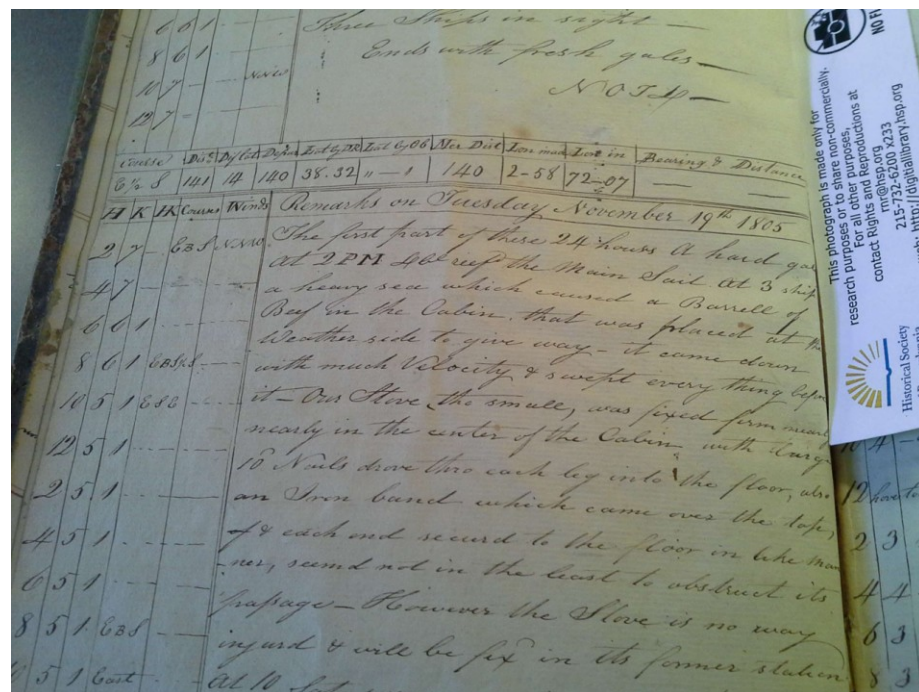 6 6 1
Three Ships in sight —
8 6 1
Ends with fresh gales —
10 7 NNW
NOTA —
12 7
Course Dis.ᵉ Dyfˡᵃᵗ Depar Lat by DR Lat by Ob Mer Dist Lon made Lon in Bearing & Distance
E ½ S 141 14 140 38.32 " — 1 140 2-58 72-07 — —
H K HK Courses Winds Remarks on Tuesday November 19th 1805
2 7 - EBS NNW The first part of these 24 hours a hard gale
At 2 PM reef the Main Sail. At 3 ship
4 7 - a heavy sea which caused a Barrell of
6 6 1 Beef in the Cabin, that was placed at the
Weather side to give way — it came down
8 6 1 EBS½S with much Velocity & swept every thing before
10 5 1 ESE it — Our Stove, tho small, was fixed firm
nearly in the center of the Cabin, with large
12 5 1 10 Nails drove thro each leg into the floor, also
2 5 1 an Iron band which came over the top,
4 5 1 & each end securd to the floor in like man
6 5 1 -ner, seemd not in the least to obstruct its
passage — However the Stove is no way
8 5 1 EBS injurd & will be fix'd in its former station
5 1 East At 10
This photograph is made only for
research purposes or to share non-commercially.
For all other purposes,
contact Rights and Reproductions at
rnr@hsp.org
215-732-6200 x233
NO FL
Historical Society
10 4
12 have to
2 3
4 4
6 3
8 3